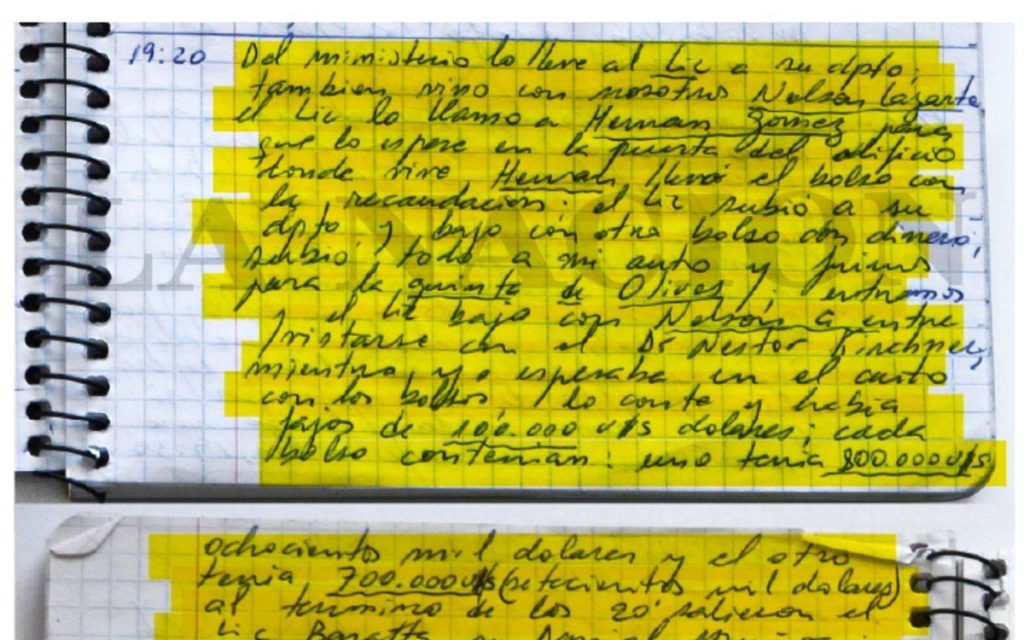 19:20 Del ministerio lo lleve al Lic a su dpto,
tambien vino con nosotros Nelson Lazarte
el Lic lo llamo a Hernan Gomez para
que lo espere en la puerta del edificio
donde vive Hernan llevó el bolso con
la recaudación; el Lic subió a su
dpto y bajo con otro bolso con dinero,
subió todo a mi auto y fuimos
para la quinta de Olivos; entramos
y el Lic bajo con Nelson a entre
/vistarse con el Dr Nestor Kirchner,
mientras yo esperaba en el auto
con los bolsos / lo conte y habia
fajos de 100.000 u$s dolares; cada
bolso contenian: uno tenia 800.000 u$s
ochocientos mil dolares y el otro
tenia 700.000 u$s (setecientos mil dolares)
al termino de los 20' salieron el
Lic Baratta y Daniel
LA NACION